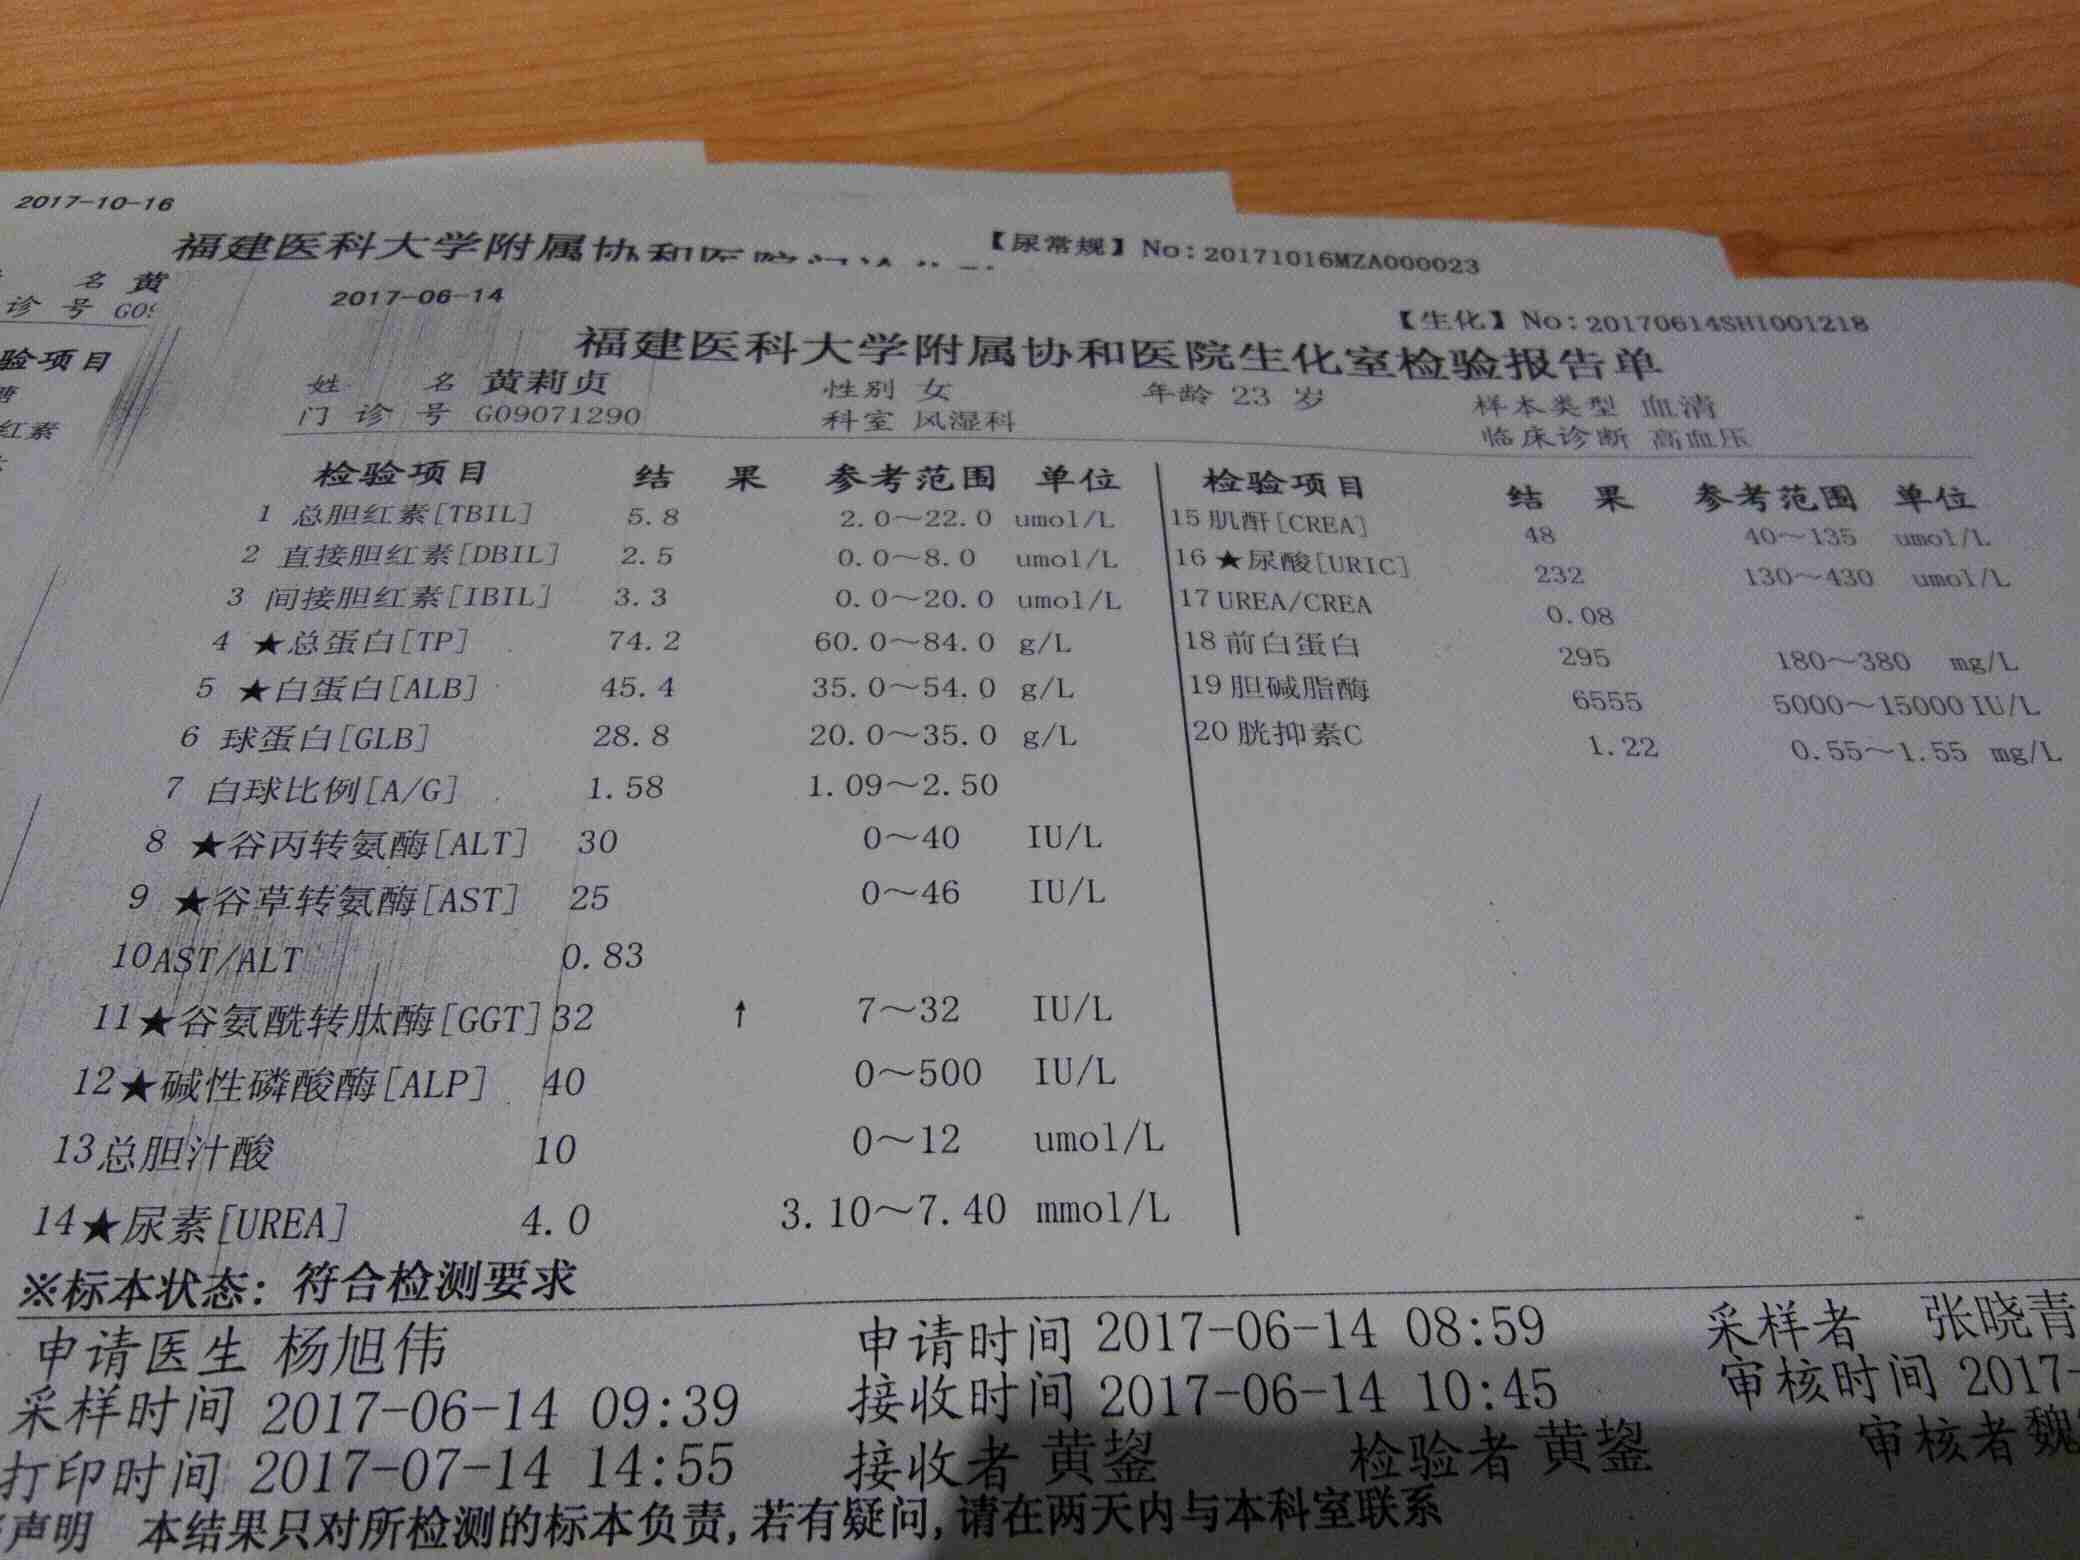 2017-10-16
福建医科大学附属协和医院
【尿常规】 No: 20171016MZA000023
名 黄
诊 号 G09
验项目
红素
2017-06-14
【生化】 No: 20170614SHI001218
福建医科大学附属协和医院生化室检验报告单
姓 名 黄莉贞 性别 女 年龄 23 岁 样本类型 血清
门 诊 号 G09071290 科室 风湿科 临床诊断 高血压
检验项目 结 果 参考范围 单位 检验项目 结 果 参考范围 单位
1 总胆红素[TBIL] 5.8 2.0~22.0 umol/L 15 肌酐[CREA] 48 40~135 umol/L
2 直接胆红素[DBIL] 2.5 0.0~8.0 umol/L 16 ★尿酸[URIC] 232 130~430 umol/L
3 间接胆红素[IBIL] 3.3 0.0~20.0 umol/L 17 UREA/CREA 0.08
4 ★总蛋白[TP] 74.2 60.0~84.0 g/L 18 前白蛋白 295 180~380 mg/L
5 ★白蛋白[ALB] 45.4 35.0~54.0 g/L 19 胆碱脂酶 6555 5000~15000 IU/L
6 球蛋白[GLB] 28.8 20.0~35.0 g/L 20 胱抑素C 1.22 0.55~1.55 mg/L
7 白球比例[A/G] 1.58 1.09~2.50
8 ★谷丙转氨酶[ALT] 30 0~40 IU/L
9 ★谷草转氨酶[AST] 25 0~46 IU/L
10 AST/ALT 0.83
11 ★谷氨酰转肽酶[GGT] 32 ↑ 7~32 IU/L
12 ★碱性磷酸酶[ALP] 40 0~500 IU/L
13 总胆汁酸 10 0~12 umol/L
14 ★尿素[UREA] 4.0 3.10~7.40 mmol/L
※标本状态: 符合检测要求
申请医生 杨旭伟 申请时间 2017-06-14 08:59 采样者 张晓青
采样时间 2017-06-14 09:39 接收时间 2017-06-14 10:45 审核时间 2017-
打印时间 2017-07-14 14:55 接收者 黄鋆 检验者 黄鋆 审核者 魏
声明 本结果只对所检测的标本负责,若有疑问,请在两天内与本科室联系